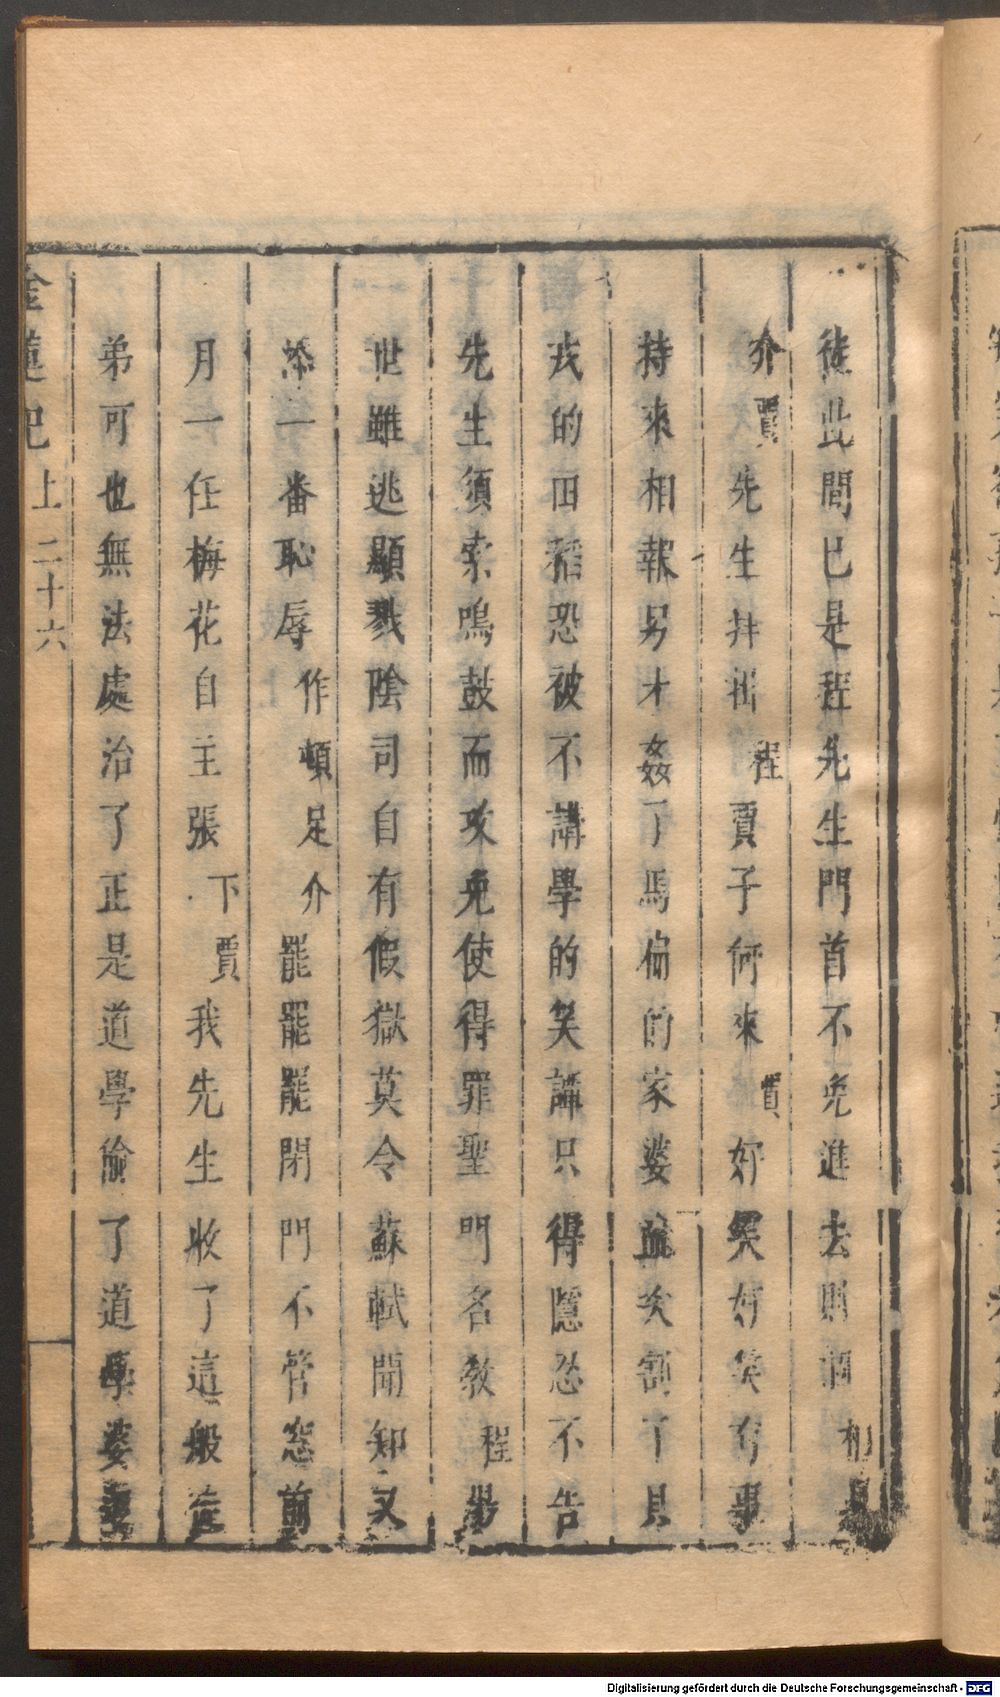 徒此間已是程先生門首不免進去則個相
介賈先生拜揖程賈子何來賈好笑好笑有事
持來相報另才姦了馬偷的家婆 矣割了具
我的田稻恐被不講學的笑講只得隱忍不告
先生須索鳴鼓而攻免使得罪聖門名教程
世雖逃顯戮陰司自有假獄莫令蘇軾聞知又
添一番恥辱作頓足介罷罷罷閉門不管窓前
月一任梅花自主張下賈我先生收了這般
弟可也無法處治了正是道學偷了道學婆
金蓮記 上 二十六
Digitalisierung gefördert durch die Deutsche Forschungsgemeinschaft - DFG